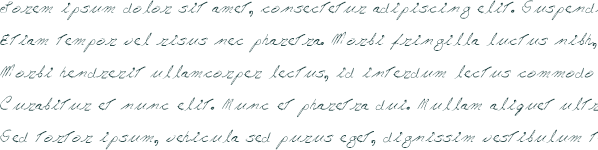 Lorem ipsum dolor sit amet, consectetur adipiscing elit. Suspend
Etiam tempor vel risus nec pharetra. Morbi fringilla luctus nibh,
Morbi hendrerit ullamcorper lectus, id interdum lectus commodo
Curabitur et nunc elit. Nunc et pharetra dui. Nullam aliquet ultr
Sed tortor ipsum, vehicula sed purus eget, dignissim vestibulum t